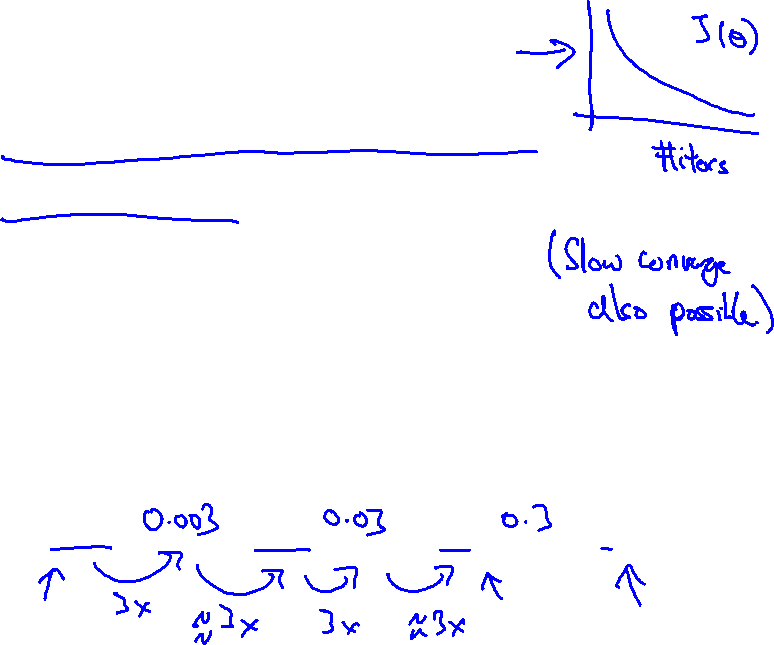 J(θ)
#iters
(Slow converge
also possible)
0.003 0.03 0.3
3x ≈3x 3x ≈3x